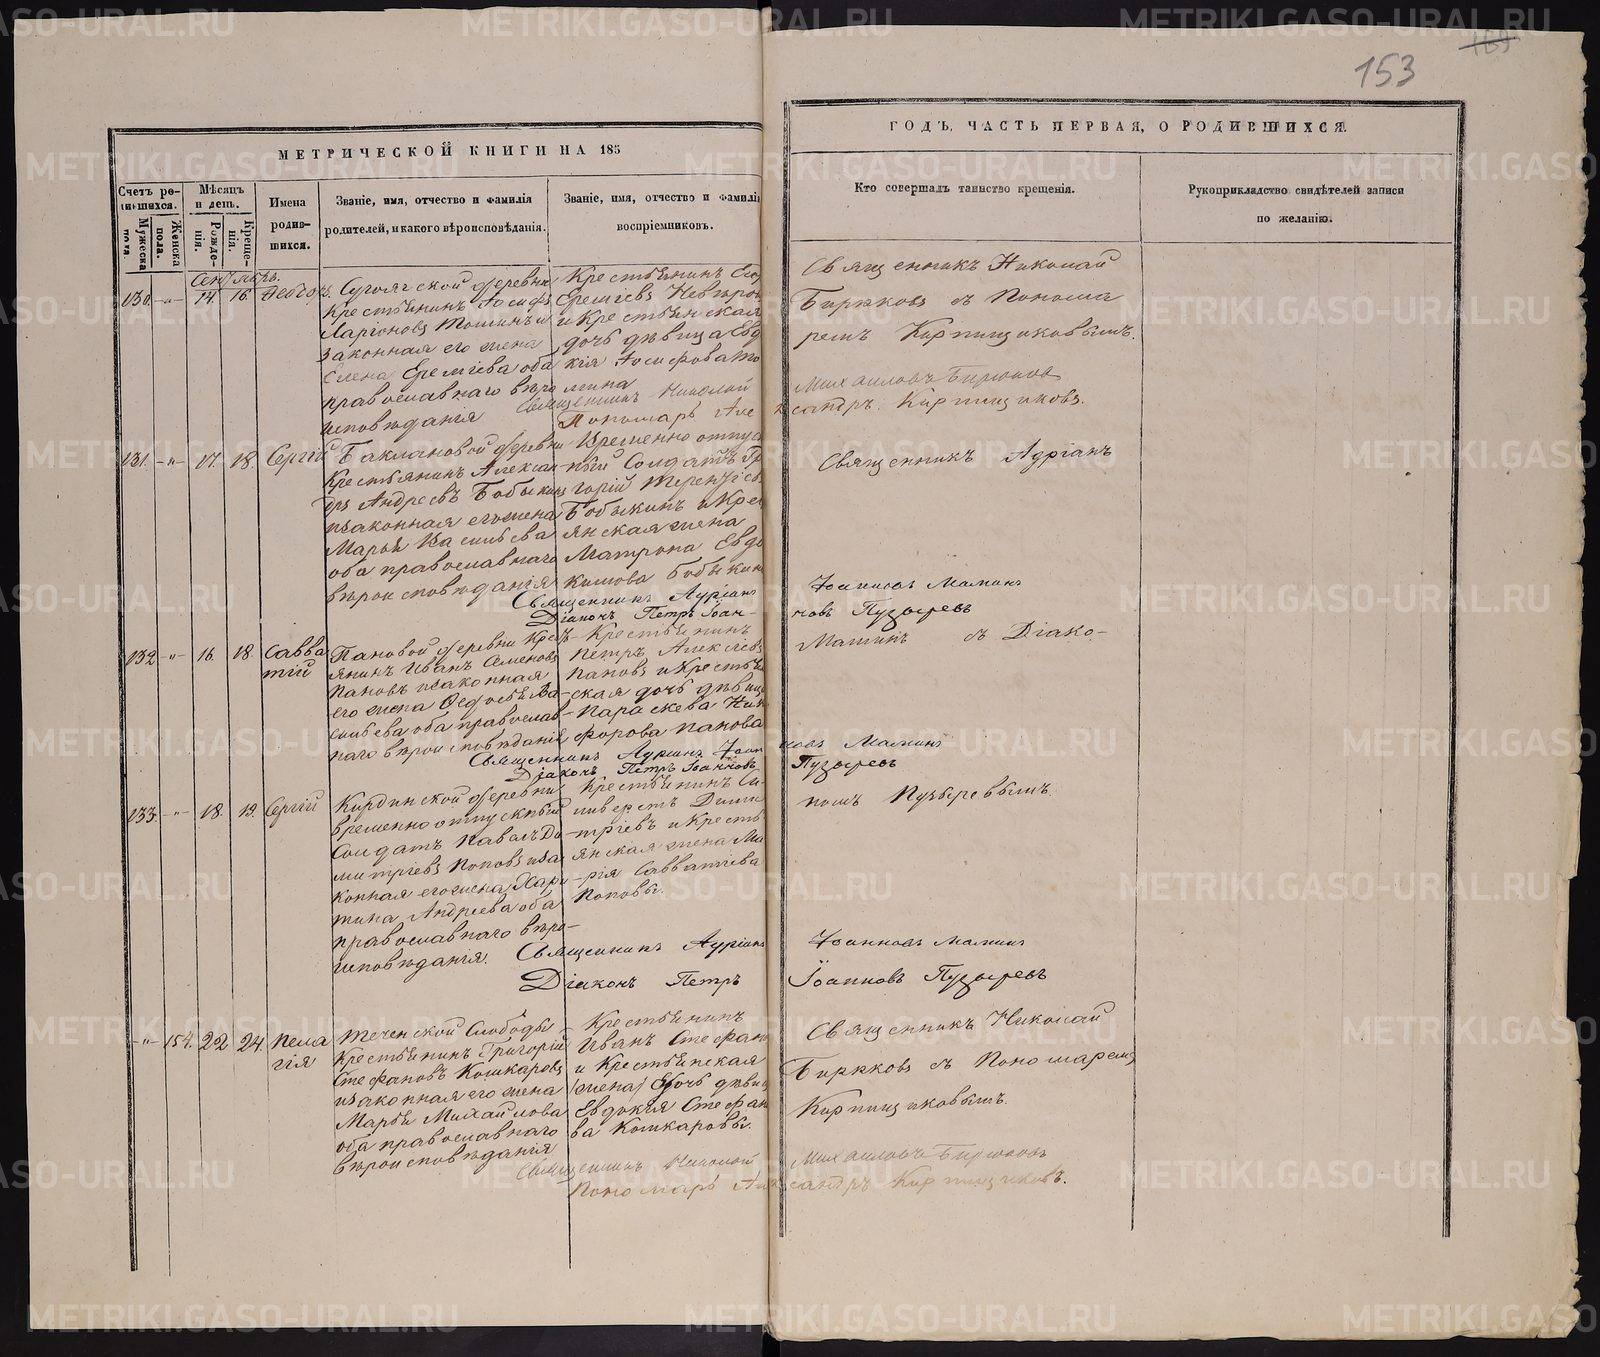 153
МЕТРИЧЕСКОЙ КНИГИ НА 185
ГОДЪ, ЧАСТЬ ПЕРВАЯ, О РОДИВШИХСЯ.
Счетъ родившихся.
Мужеска пола.
Женска пола.
Мѣсяцъ и день.
Рожденія.
Крещенія.
Имена родившихся.
Званіе, имя, отчество и фамилія
родителей, и какого вѣроисповѣданія.
Званіе, имя, отчество и фамилія
воспріемниковъ.
Кто совершалъ таинство крещенія.
Рукоприкладство свидѣтелей записи
по желанію.
Сентябрь.
130. -„- 14. 16.
Сугоякской деревни
крестьянинъ Іосифъ
Ларіоновъ Томинъ и
законная его жена
Елена Еремѣева оба
православнаго вѣро
исповѣданія
Крестьянинъ
и крестьянская
дочь дѣвица Евд
кія Іосифова То
мина
Священникъ Николай
Бирюковъ съ Понома
ремъ Кирпищиковымъ.
Священникъ Николай Михаиловъ Бирюковъ
Пономарь Александръ Кирпищиковъ.
131. -„- 17. 18. Сергій
Баклановой деревни
крестьянинъ Алексан
дръ Андреевъ Бобыкинъ
и законная его жена
Марья Васильева
оба православнаго
вѣроисповѣданія
Временно отпуск
ный Солдатъ Гри
горій Терентьевъ
Бобыкинъ и Крес
янская жена
Матрона Евдо
кимова Бобыкин
Священникъ Адріанъ
Священникъ Адріанъ Іоанновъ Маминъ
Діаконъ Петръ Іоанновъ Пузыревъ
132 -„- 16. 18. Савва
тій
Пановой деревни крест
янинъ Иванъ Семеновъ
Пановъ и законная
его жена Ѳедосья Ва
сильева оба православ
наго вѣроисповѣданія
Крестьянинъ
Петръ Алексѣевъ
Пановъ и крестьян
ская дочь дѣвица
Параскева Ники
форова Панова
Маминъ съ Діако-
Священникъ Адріанъ Іоанновъ Маминъ
Діаконъ Петръ Іоанновъ Пузыревъ
133. -„- 18. 19. Сергій
Кирдинской деревни
временно отпускный
Солдатъ Павелъ Ди
митріевъ Поповъ и за
конная его жена Хари
тина Андреева оба
православнаго вѣро-
исповѣданія.
Крестьянинъ Си
ливерстъ Дими
тріевъ и крестьянская жена Ма
рія Савватіева
Поповы.
номъ Пузыревымъ.
Священникъ Адріанъ Іоанновъ Маминъ
Діаконъ Петръ Іоанновъ Пузыревъ
-„- 154. 22 24. Пела
гія
Теченской Слободы
крестьянинъ Григорій
Стефановъ Кошкаровъ
и законная его жена
Марья Михайлова
оба православнаго
вѣроисповѣданія
Крестьянинъ
Иванъ Стефан
и Крестьянская
(жена) дочь дѣвица
Евдокія Стефан
ва Кошкаровы.
Священникъ Николай
Бирюковъ съ Пономаремъ
Кирпищиковымъ.
Священникъ Николай Михаиловъ Бирюковъ
Пономарь Александръ Кирпищиковъ.
METRIKI.GASO-URAL.RU